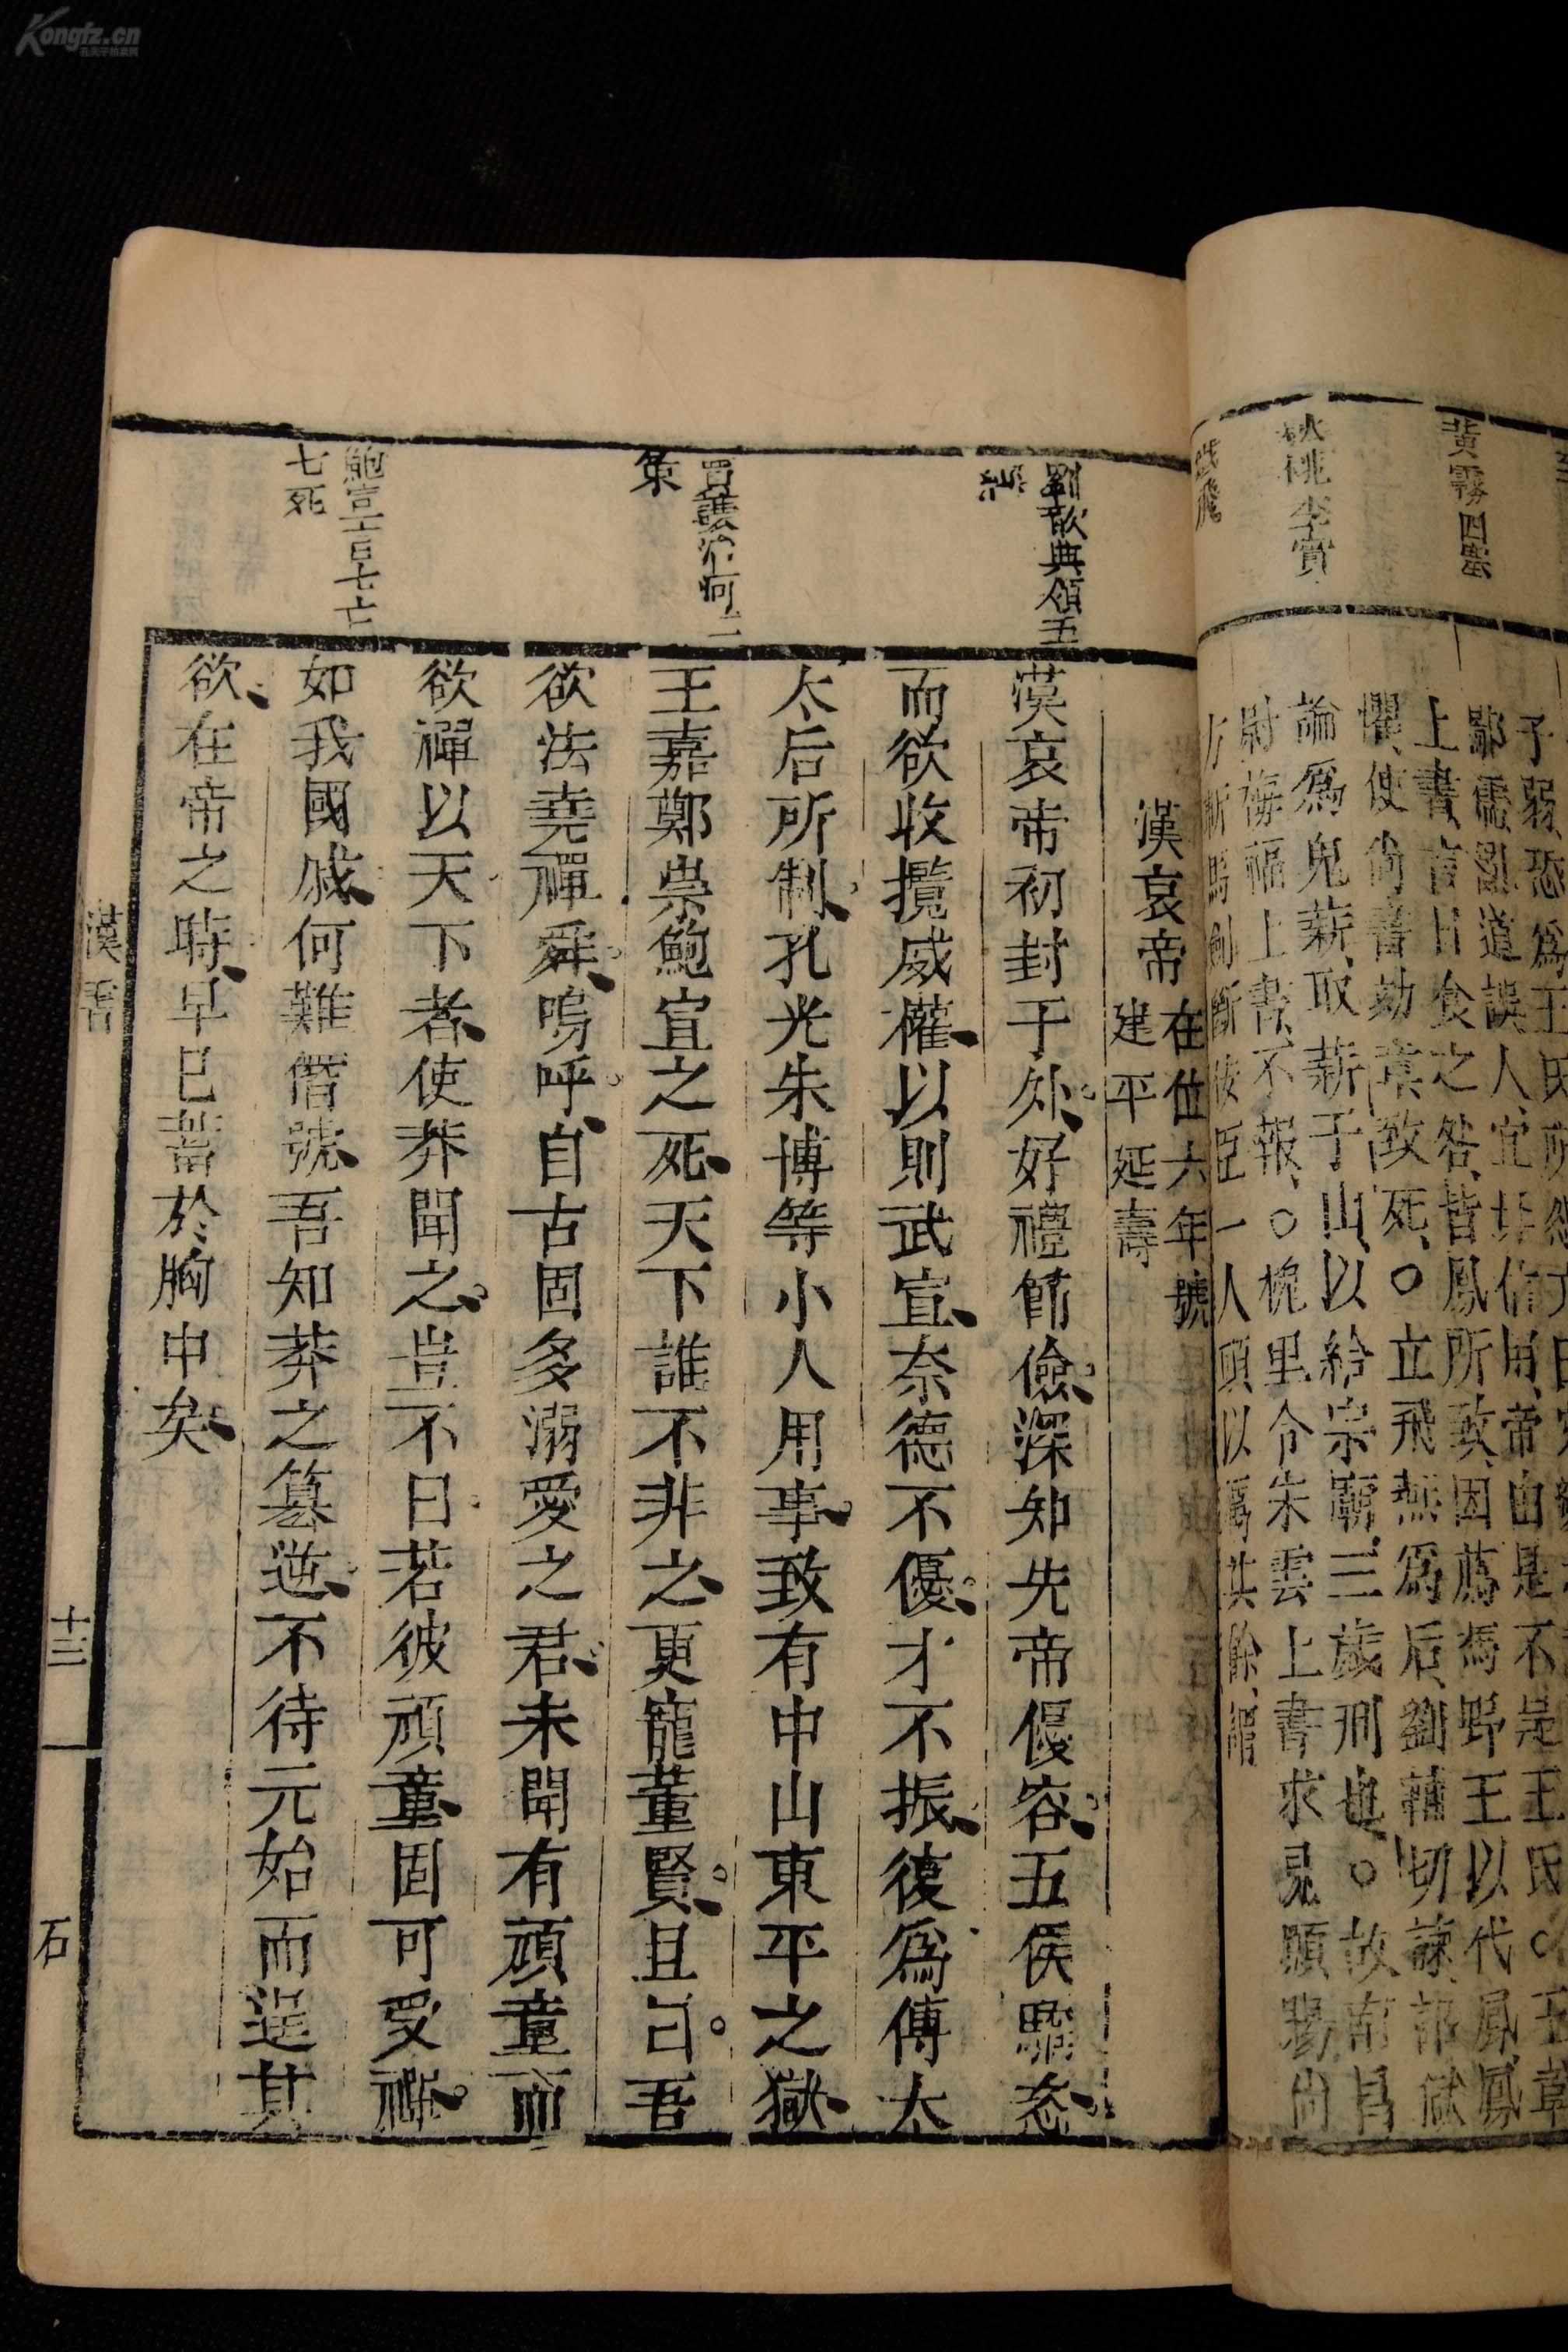 Kongfz.cn
孔夫子拍卖网
黃霧四塞
秋桃李實
子弱恐爲王氏所
鄙儒亂道誤人宜無信用帝由是不是王氏○王章
上書言日食之咎皆鳳所致因薦馮野王以代鳳鳳
懼使尚書劾章致死○立飛燕爲后劉輔切諫
論爲鬼薪取薪于山以給宗廟三歲刑也○故南昌
尉梅福上書不報○槐里令朱雲上書求見願賜尚
方斬馬劍斷佞臣一人頭以厲其餘
劉歆典領五
賈讓治河三
策
鮑宣言七亡
七死
漢哀帝在位六年號
建平延壽
漢哀帝初封于外好禮節儉深知先帝優容五侯驕恣
而欲收攬威權以則武宣奈德不優才不振復爲傅太
太后所制孔光朱博等小人用事致有中山東平之獄
王嘉鄭崇鮑宣之死天下誰不非之更寵董賢且曰吾
欲法堯禪舜嗚呼自古固多溺愛之君未聞有頑童而
欲禪以天下者使莽聞之豈不曰若彼頑童固可受禪
如我國戚何難僭號吾知莽之篡逆不待元始而逞其
欲在帝之時早已蓄於胸中矣
漢
十三
石